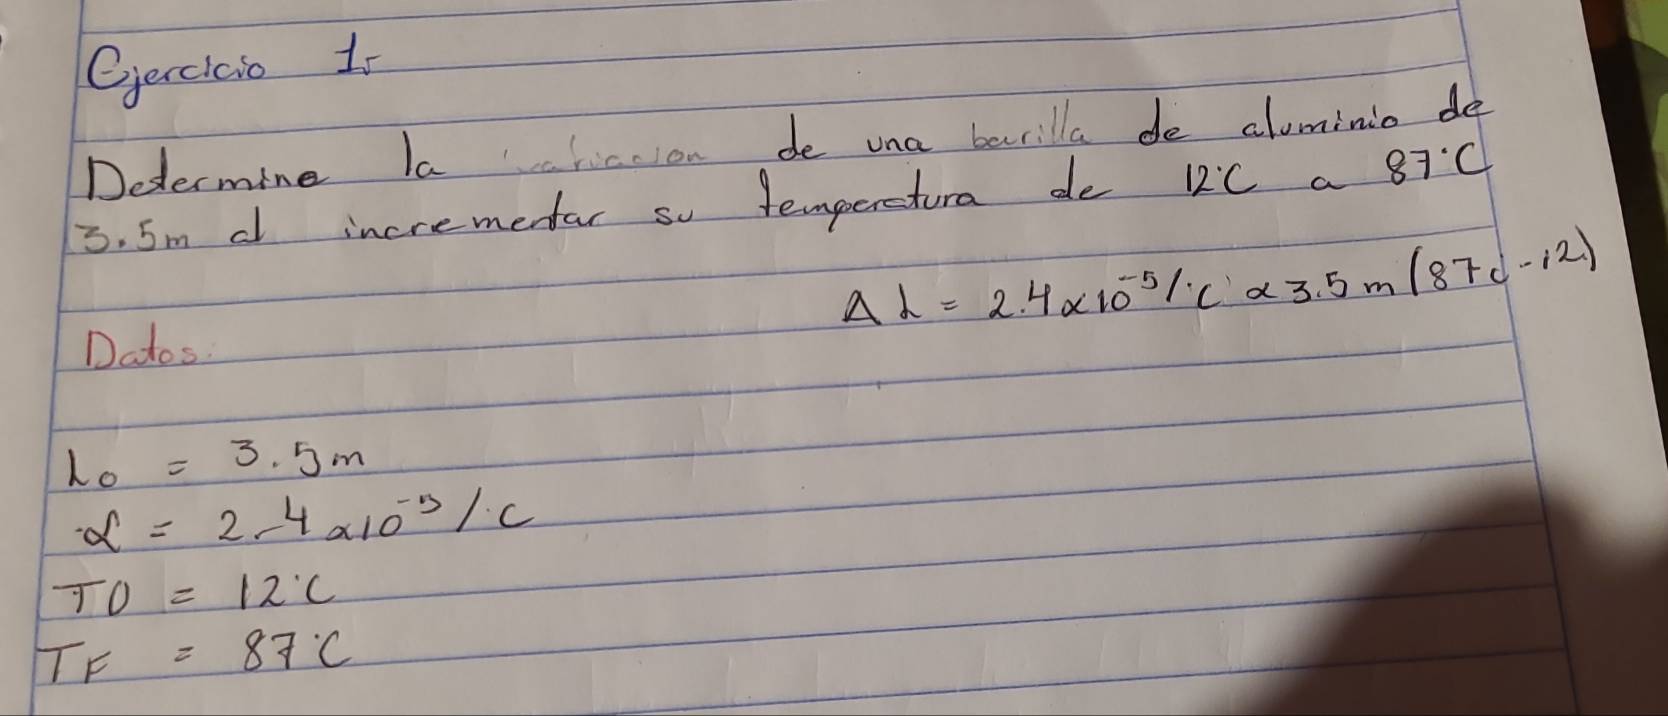 Ejercicio 1.-
Determine la variacion de una barilla de aluminio de
3.5m al incrementar su temperatura de 12°C a 87°C
ΔL = 2.4x10⁻⁵/°C x 3.5m (87°C-12)
Datos:
Lo = 3.5m
α = 2.4x10⁻⁵/°C
TO = 12°C
TF = 87°C